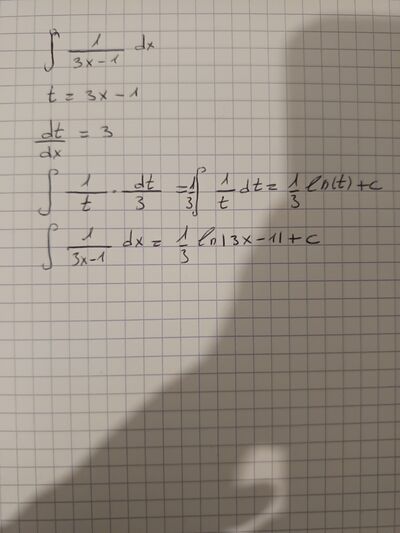 ∫ 1/(3x-1) dx
t = 3x-1
dt/dx = 3
∫ 1/t · dt/3 = 1/3 ∫ 1/t dt = 1/3 ln(t)+c
∫ 1/(3x-1) dx = 1/3 ln|3x-1|+c